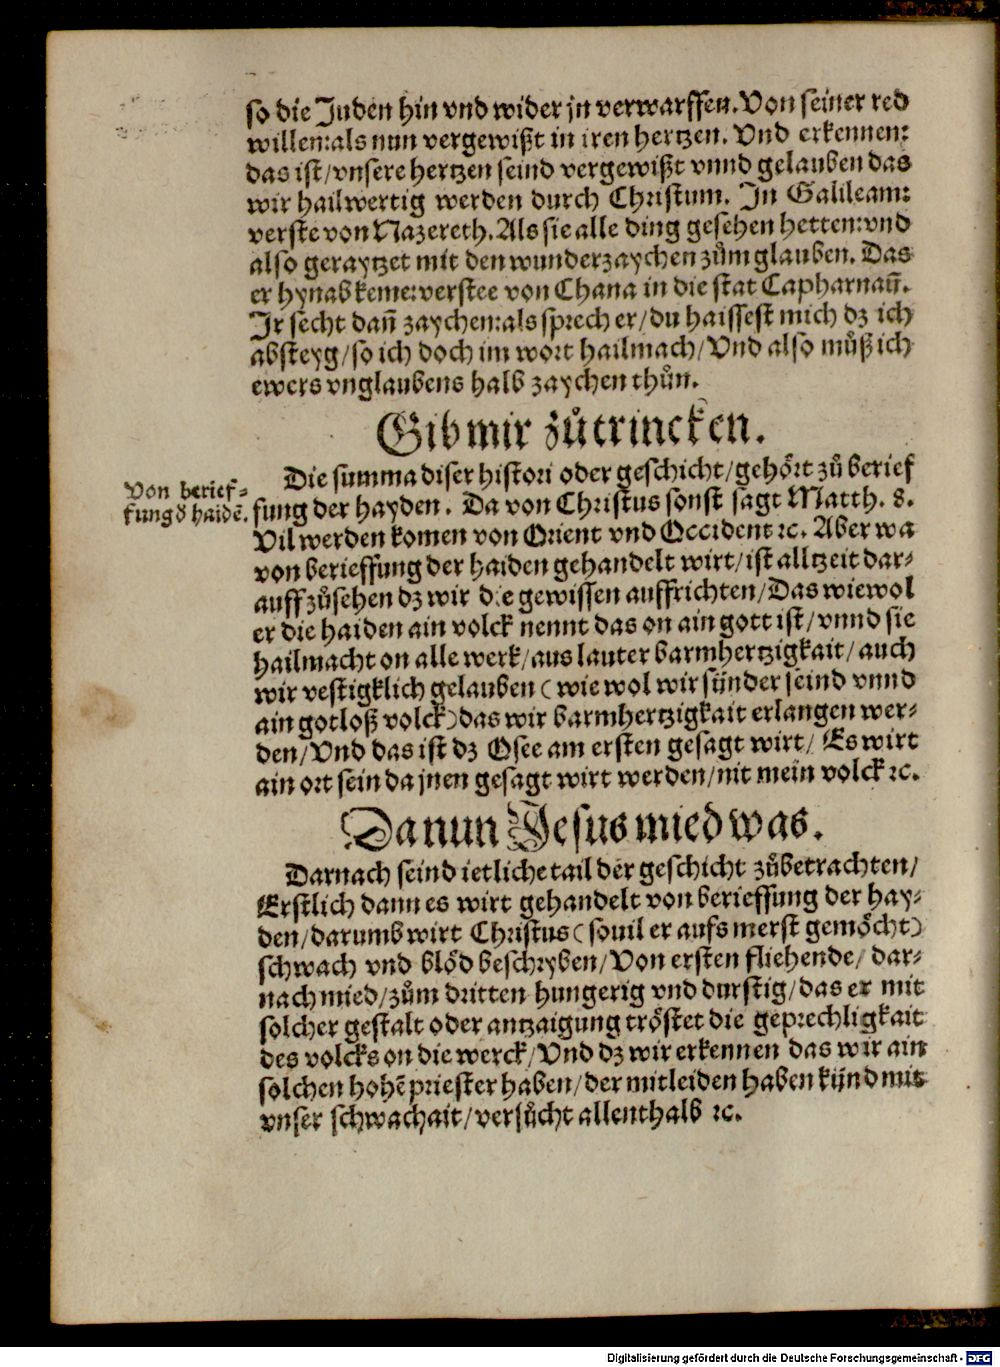 so die Juden hin vnd wider jn verwarffen. Von seiner red
willen: als nun vergewißt in iren hertzen. Vnd erkennen:
das ist/ vnsere hertzen seind vergewißt vnnd gelauben das
wir hailwertig werden durch Christum. In Galileam:
verste von Nazereth. Als sie alle ding gesehen hetten: vnd
also geraytzet mit den wunderzaychen zům glauben. Das
er hynab keme: verstee von Chana in die stat Capharnaū.
Ir secht dañ zaychen: als sprech er/ du haissest mich dz ich
absteyg/ so ich doch im wort hailmach/ Vnd also můß ich
ewers vnglaubens halb zaychen thůn.
Gib mir zů trincken.
Die summa diser histori oder geschicht/ gehört zů berief
Von berief-
fung d haidē.
fung der hayden. Da von Christus sonst sagt Matth. 8.
Vil werden komen von Orient vnd Occident ꝛc. Aber wa
von berieffung der haiden gehandelt wirt/ ist alltzeit dar-
auff zůsehen dz wir die gewissen auffrichten/ Das wiewol
er die haiden ain volck nennt das on ain gott ist/ vnnd sie
hailmacht on alle werk/ aus lauter barmhertzigkait/ auch
wir vestigklich gelauben (wie wol wir sünder seind vnnd
ain gotloß volck) das wir barmhertzigkait erlangen wer-
den/ Vnd das ist dz Osee am ersten gesagt wirt/ Es wirt
ain ort sein da jnen gesagt wirt werden/ nit mein volck ꝛc.
Da nun Jesus mied was.
Darnach seind ietliche tail der geschicht zůbetrachten/
Erstlich dann es wirt gehandelt von berieffung der hay-
den/ darumb wirt Christus (souil er aufs merst gemöcht)
schwach vnd blöd beschryben/ Von ersten fliehende/ dar-
nach mied/ zům dritten hungerig vnd durstig/ das er mit
solcher gestalt oder antzaigung tröstet die geprechligkait
des volcks on die werck/ Vnd dz wir erkennen das wir ain
solchen hohē priester haben/ der mitleiden haben künd mit
vnser schwachait/ versůcht allenthalb ꝛc.
Digitalisierung gefördert durch die Deutsche Forschungsgemeinschaft - DFG